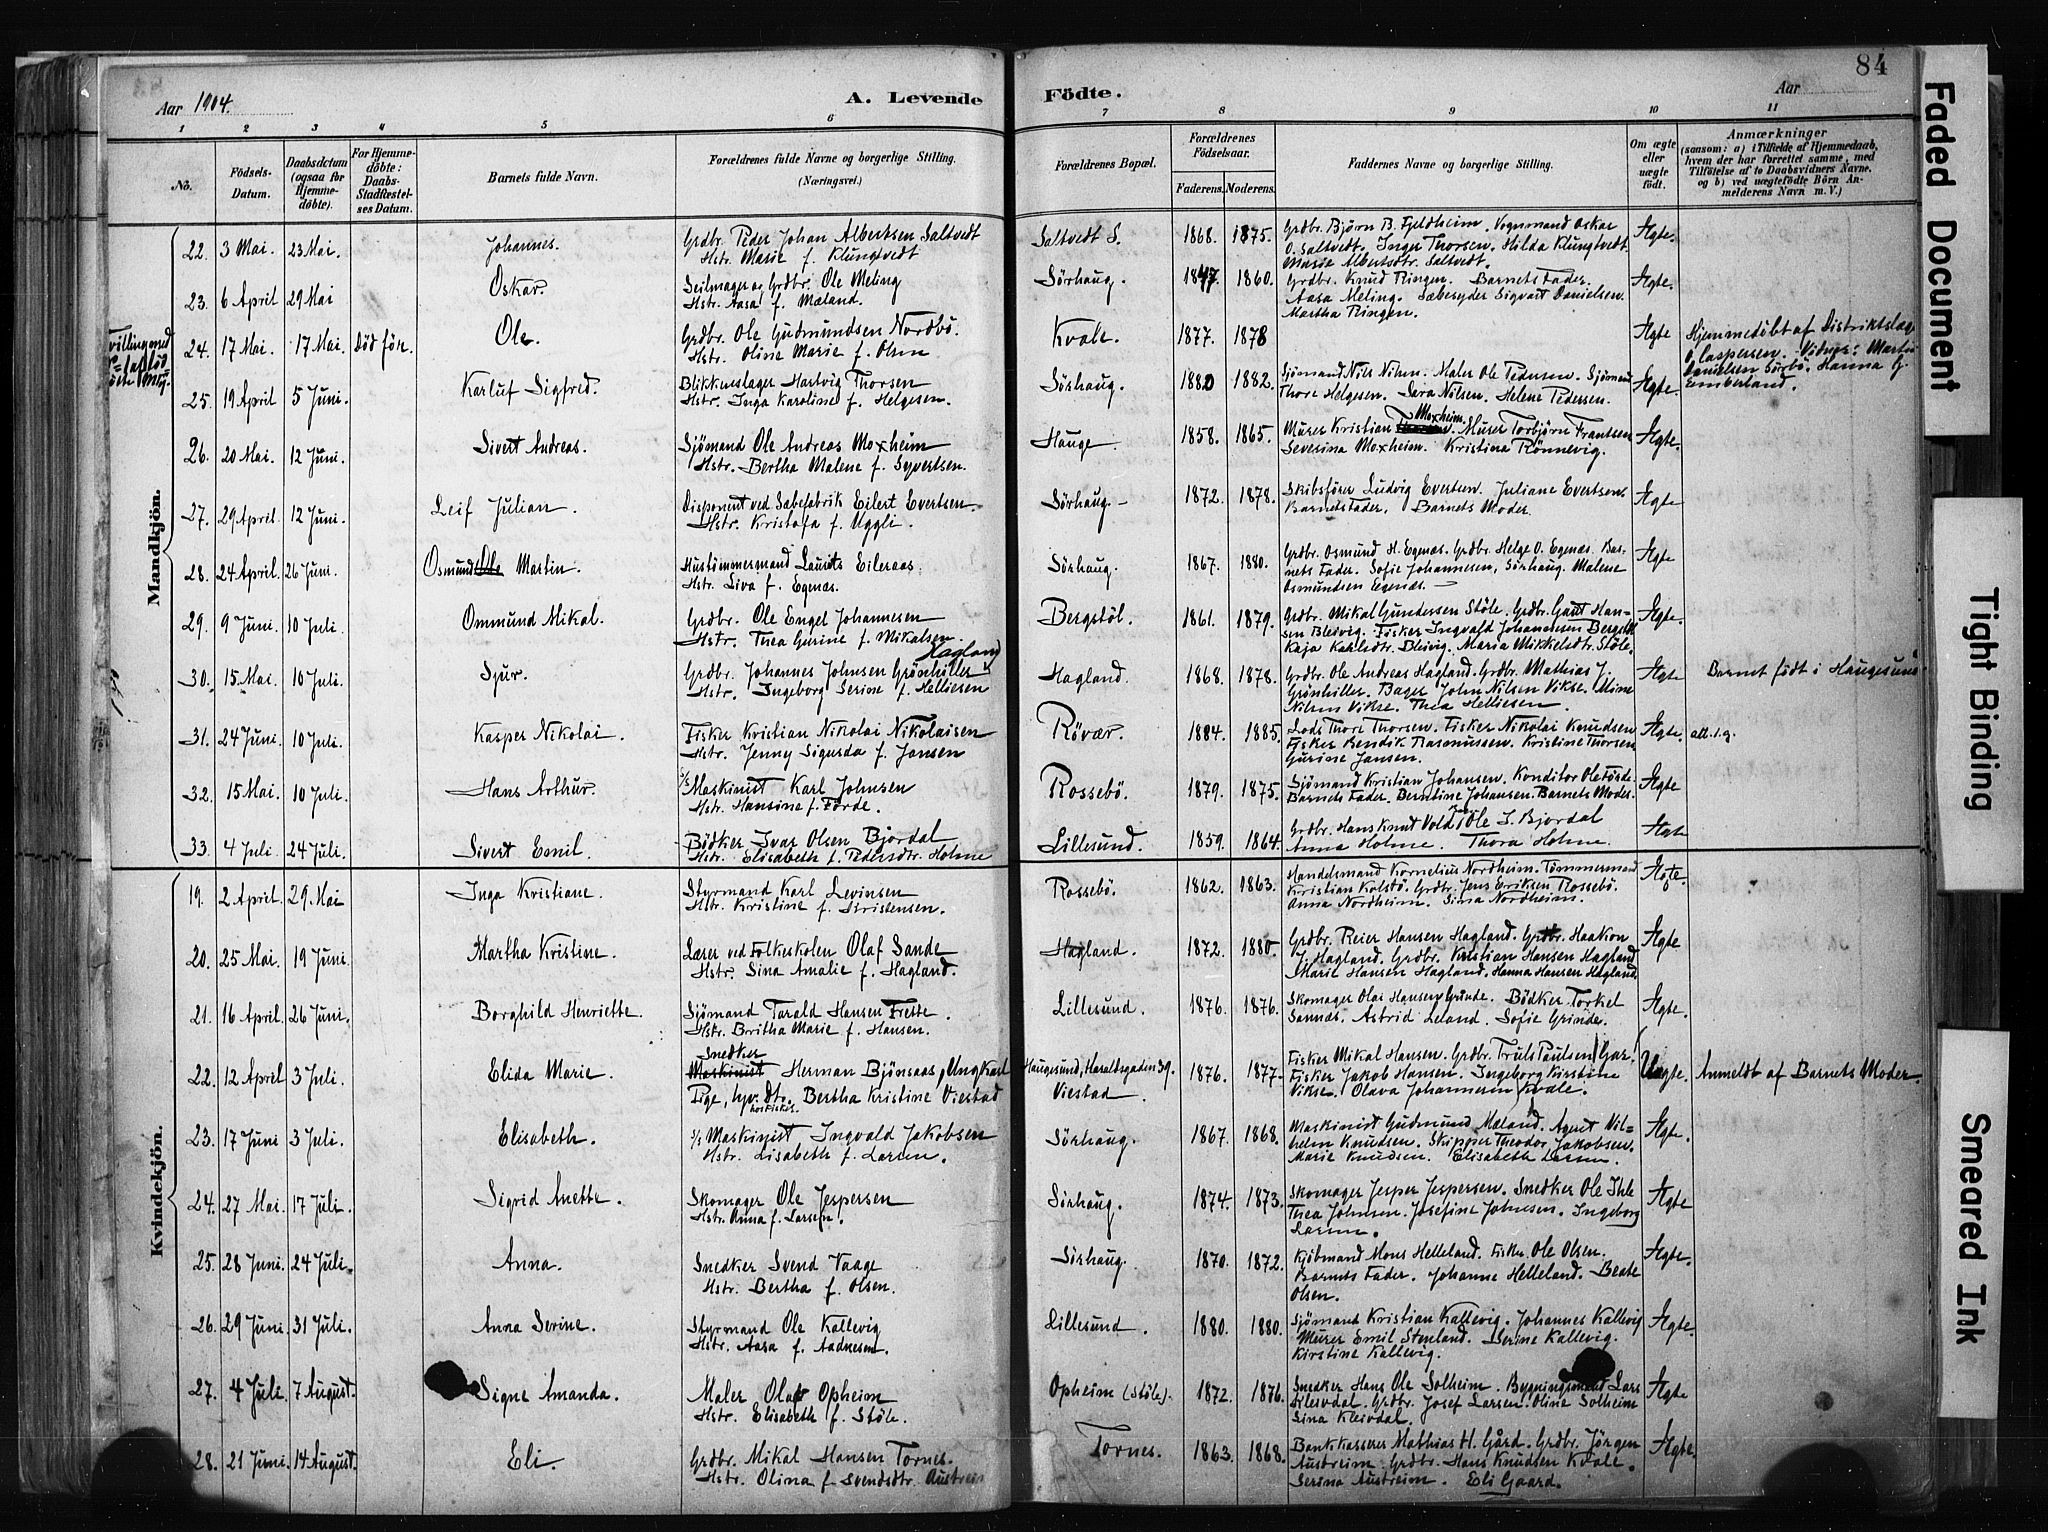 84
Aar 1904.
A. Levende Födte.
Aar
1 2 3 4 5 6 7 8 9 10 11
No.
Födsels-Datum.
Daabsdatum (ogsaa for Hjemmedöbte).
For Hjemmedöbte: Daabs-Stadfæstelses Datum.
Barnets fulde Navn.
Forældrenes fulde Navne og borgerlige Stilling. (Næringsvei.)
Forældrenes Bopæl.
Forældrenes Födselsaar.
Faderens. Moderens.
Faddernes Navne og borgerlige Stilling.
Om ægte eller uægte født.
Anmærkninger
(saasom: a) i Tilfælde af Hjemmedaab, hvem der har forrettet samme, med Tilföielse af to Daabsvidners Navne, og b) ved uægtefödte Börn Anmelderens Navn m. V.)
Mandkjön.
22. 3 Mai. 23 Mai. Johannes. Grdbr. Peder Johan Albertsen Saltvedt
Hstr. Marie f. Klungtvedt
Saltvedt S. 1868. 1875. Grdbr. Bjørn B. Fjeldheim. Vognmand Oskar
O. Saltvedt. Inger Thorsen. Hilda Klungtvedt.
Marie Albertsdtr. Saltvedt. Ægte.
23. 6 April 29 Mai Oskar. Seilmager og Grdbr. Ole Meling
Hstr. Aasa f. Mæland.
Sörhaug. 1847. 1860. Grdbr. Knud Ringen. Barnets Fader.
Aasa Meling. Sæbesyder Sigvart Danielsen.
Martha Ringen. Ægte.
24. 17 Mai. 17 Mai. Död för. Ole. Grdbr. Ole Gudmundsen Nordbö.
Hstr. Oline Marie f. Olsen
Kvale. 1877. 1878 Ægte Hjemmedöbt af Distriktslæge
O. Caspersen. Vidner: Martin
Danielsen Sörbö. Hanna G.
Emberland.
25. 19 April 5 Juni. Karluf Sigfred. Blikkenslager Hartvig Thorsen
Hstr. Inga Karoline f. Helgesen.
Sörhaug. 1880 1882. Sjömand Nils Nilsen. Maler Ole Pedersen. Sjömand
Thore Helgesen. Sara Nilsen. Helene Pedersen. Ægte.
26. 20 Mai. 12 Juni. Sivert Andreas. Sjömand Ole Andreas Moxheim
Hstr. Bertha Malene f. Syvertsen.
Hauge. 1858. 1865. Murer Kristian Moxheim. Murer Torbjörn Frantsen
Severina Moxheim. Kristina Rönnevig. Ægte.
27. 29 April. 12 Juni. Leif Julian. Disponent ved Sæbefabrik Eilert Evertsen
Hstr. Kristofa f. Uggli.
Sörhaug. 1872. 1878. Skibsförer Ludvig Evertsen. Juliane Evertsen.
Barnets Fader. Barnets Moder. Ægte
28. 24 April. 26 Juni. Osmund Ole Martin. Hustömmermand Laurits Eileraas
Hstr. Siva f. Egenæs.
Sörhaug. 1867. 1880. Grdbr. Osmund H. Egenæs. Grdbr. Helge O. Egenæs. Bar-
nets Fader. Sofie Johannesen, Sörhaug. Malene
Osmundsen Egenæs. Ægte
29. 9 Juni. 10 Juli. Ommund Mikal. Grdbr. Ole Engel Johannesen
Hstr. Thea Gurine f. Mikalsen.
Bergstöl. 1861. 1879. Grdbr. Mikal Gundersen Stöle. Grdbr. Gaut Han-
sen Bleivig. Fisker Ingvald Johannesen Bergstöl
Kaja Karlsdtr. Bleivig. Maria Mikkelsdtr. Stöle. Ægte.
30. 15 Mai. 10 Juli. Sjur. Grdbr. Johannes Johnsen Grönhiller Hagland
Hstr. Ingeborg Serine f. Helliesen
Hagland. 1868. 1878. Grdbr. Ole Andreas Hagland. Grdbr. Mathias J.
Grönhiller. Bager John Nilsen Vikse. Mine
Nilsen Vikse. Thea Helliesen Ægte Barnet födt i Haugesund
31. 24 Juni. 10 Juli. Kasper Nikolai. Fisker Kristian Nikolai Nikolaisen
Hstr. Jenny Sigurda f. Jansen
Rövær. 1884. 1885. Lods Thore Thorsen. Fisker Nikolai Knudsen
Fisker Bendik Rasmussen. Kristine Thorsen
Gurine Jansen. Ægte. att. i. g.
32. 15 Mai. 10 Juli. Hans Arthur. Maskinist Karl Johnsen
Hstr. Hansine f. Förde.
Rossebö. 1879. 1875. Sjömand Kristian Johansen. Konditor Ole Förde.
Barnets Fader. Berntine Johansen. Barnets Moder. Ægte
33. 4 Juli. 24 Juli. Sivert Emil. Bödker Ivar Olsen Bjordal
Hstr. Elisabeth f. Pedersdtr. Holme
Lillesund. 1859. 1864. Grdbr. Hans Knut Vold. Ole I. Bjordal
Anna Holme. Thora Holme. Ægte
Kvindekjön.
19. 2 April. 29. Mai Inga Kristiane. Styrmand Karl Levinsen
Hstr. Kristine f. Kristensen.
Rossebö. 1862. 1863. Handelsmand Kornelius Nordheim. Tömmermand
Kristian Kolstö. Grdbr. Jens Eriksen Rossebö.
Anna Nordheim. Sina Nordheim. Ægte.
20. 25 Mai. 19 Juni. Martha Kristine. Lærer ved Folkeskolen Olaf Sande
Hstr. Sina Amalie f. Hagland.
Hagland. 1872. 1880. Grdbr. Reier Hansen Hagland. Grdbr. Haakon
J. Hagland. Grdbr. Kristian Hansen Hagland
Marie Hansen Hagland. Hanna Hansen Hagland. Ægte
21. 16 April. 26 Juni. Borghild Henriette. Sjömand Tarald Hansen Frette.
Hstr. Britha Marie f. Hansen.
Lillesund. 1876. 1876. Skomager Olai Hansen Grinde. Bödker Torkel
Sannæs. Astrid Leland. Sofie Grinde. Ægte.
22. 12 April 3 Juli. Elida Marie. Snedker Maskinist Herman Bjönsaas, Ungkarl
Pige, Bertha Kristine Viestad
Haugesund, Haraldsgaden 39.
Viestad 1876. 1877. Fisker Mikal Hansen. Grdbr. Truls Paulsen
Fisker Jakob Hansen. Ingeborg Kirstine
Vikse. Olava Johannesen Kvale. Uægte. Anmeldt af Barnets Moder.
23. 17 Juni 3 Juli. Elisabeth. Maskinist Ingvald Jakobsen
Hstr. Lisabeth f. Larsen.
Sörhaug. 1867. 1868. Maskinist Gudmund Mæland. Agent Vil-
helm Knudsen. Skipper Theodor Jakobsen.
Marie Knudsen. Elisabeth Larsen. Ægte.
24. 27 Mai. 17 Juli. Sigrid Anette. Skomager Ole Jespersen
Hstr. Anna f. Larsen.
Sörhaug. 1874. 1873. Skomager Jesper Jespersen. Snedker Ole Ihle
Thea Johnsen. Josefine Johnsen. Ingeborg
Larsen. Ægte
25. 28 Juni. 24 Juli. Anna. Snedker Svend Vaage
Hstr. Bertha f. Olsen.
Sörhaug. 1870. 1872. Kjöbmand Mons Helleland. Fisker Ole Olsen.
Barnets Fader. Johanne Helleland. Beate
Olsen. Ægte.
26. 29 Juni. 31 Juli. Anna Serine. Styrmand Ole Kallevig
Hstr. Aasa f. Aadnesen.
Lillesund. 1880. 1880. Sjömand Kristian Kallevig. Johannes Kallevig
Murer Emil Stenland. Serine Kallevig.
Kirstine Kallevig. Ægte.
27. 4 Juli 7 August. Signe Amanda. Maler Olaf Opheim
Hstr. Elisabeth f. Stöle.
Opheim (Stöle). 1872. 1876. Snedker Hans Ole Solheim. Bygningsmand Lars
Kleivdal. Grdbr. Josef Larsen. Oline Solheim
Sina Kleivdal. Ægte
28. 21 Juni. 14 August. Eli. Grdbr. Mikal Hansen Tornes.
Hstr. Olina f. Svendsdtr. Austreim
Tornes. 1863. 1868. Bankkasserer Mathias H. Gård. Grdbr. Jörgen
Austreim. Grdbr. Hans Knudsen Kvale.
Serina Austreim. Eli Gaard. Ægte.
Faded Document
Tight Binding
Smeared Ink